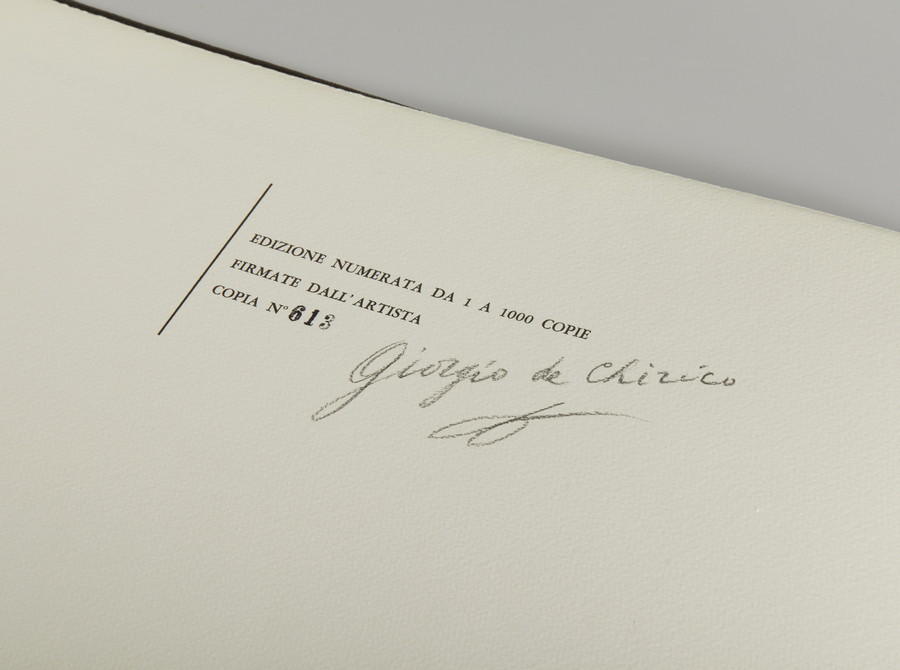 EDIZIONE NUMERATA DA 1 A 1000 COPIE
FIRMATE DALL'ARTISTA
COPIA N° 613
Giorgio de Chirico